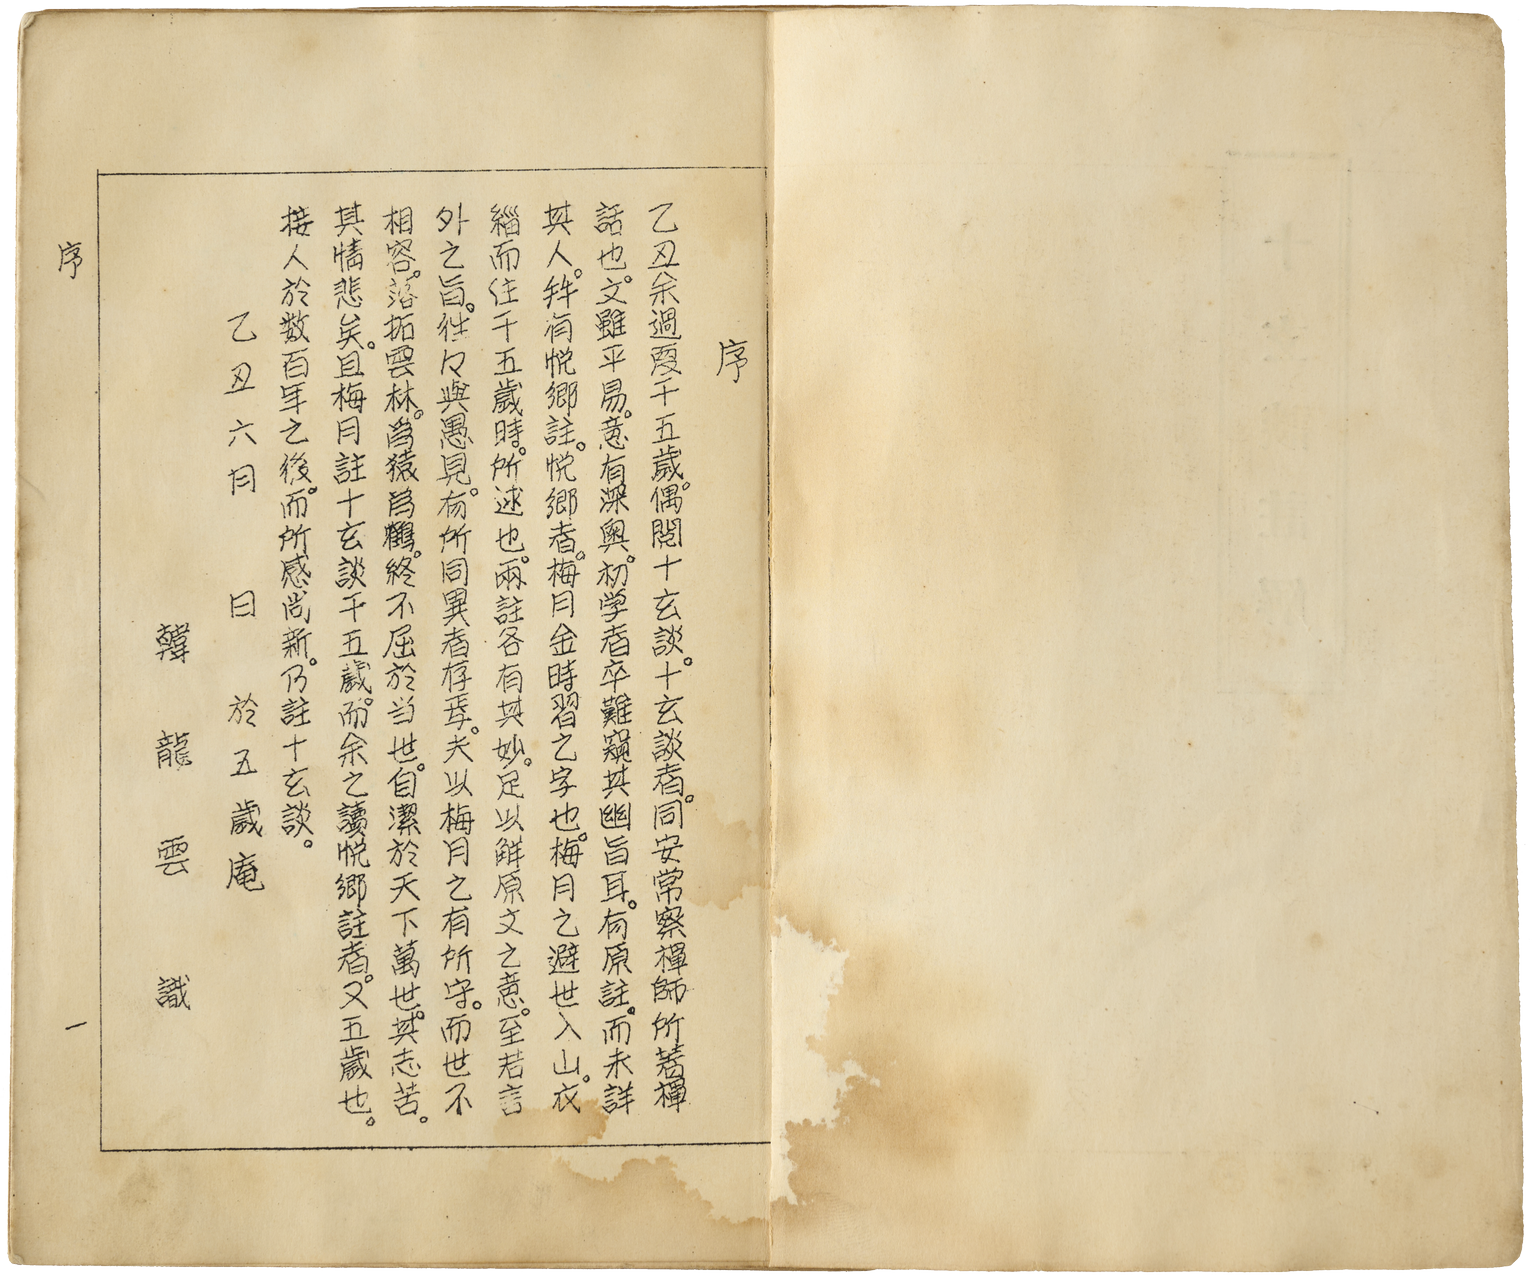 序
乙丑余過夏于五歲。偶閱十玄談。十玄談者。同安常察禪師所著禪
話也。文雖平易。意有深奧。初学者卒難窺其幽旨耳。有原註。而未詳
其人。幷有悅鄕註。悅鄕者。梅月金時習之字也。梅月之避世入山。衣
緇而住于五歲時。所述也。兩註各有其妙。足以解原文之意。至若言
外之旨。往々與愚見。有所同異者存焉。夫以梅月之有所守。而世不
相容。落拓雲林。爲猿爲鶴。終不屈於当世。自潔於天下萬世。其志苦。
其情悲矣。且梅月註十玄談于五歲。而余之讀悅鄕註者。又五歲也。
接人於数百年之後。而所感尚新。乃註十玄談。
乙丑六月 日 於五歲庵
韓龍雲 識
序
一